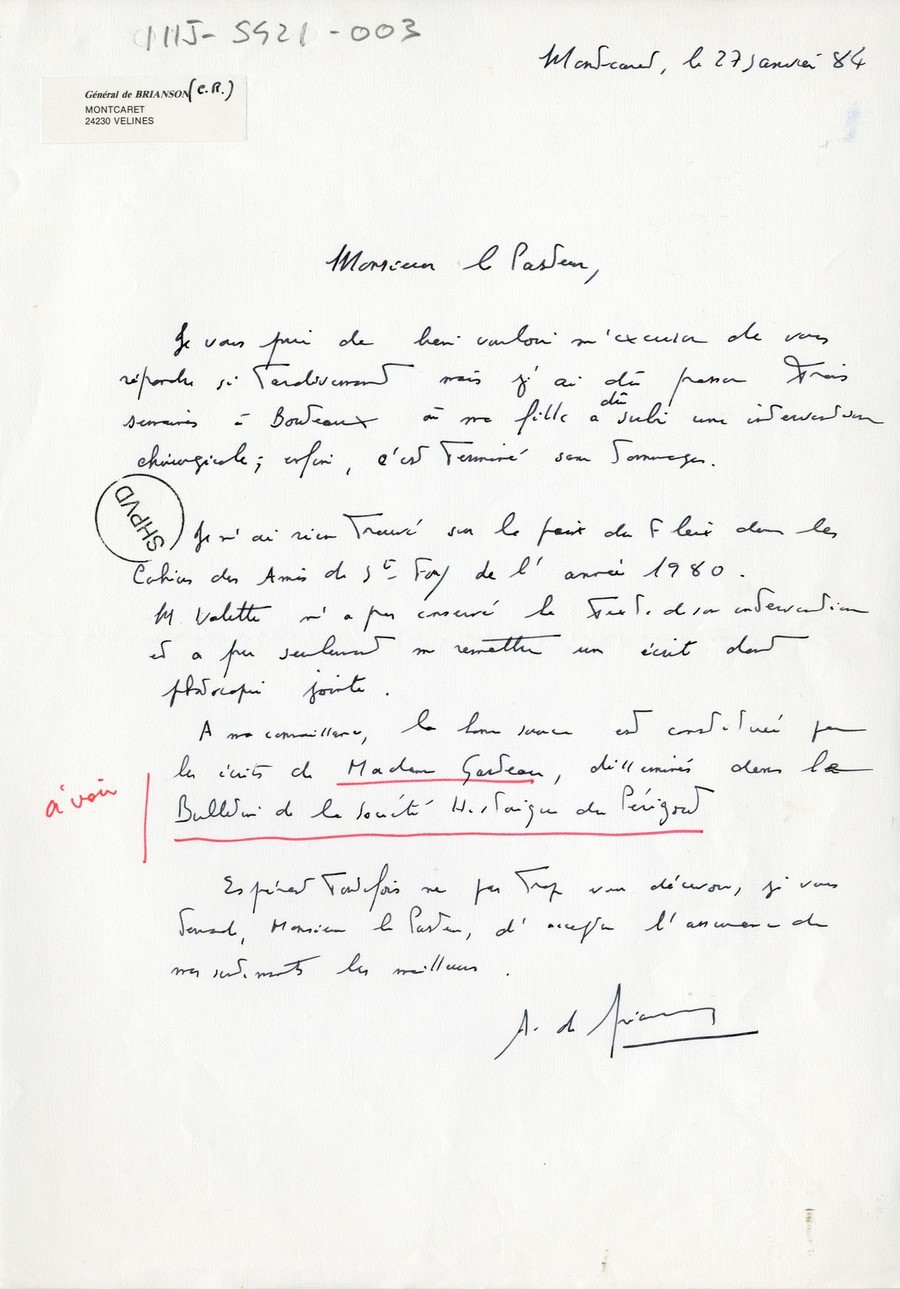 111J-SG21-003
Montcaret, le 27 Janvier 84
Général de BRIANSON (C.R.)
MONTCARET
24230 VELINES
Monsieur le Pasteur,
Je vous prie de bien vouloir m'excuser de vous
répondre si tardivement mais j'ai dû passer trois
semaines à Bordeaux où ma fille a dû subi une intervention
chirurgicale ; enfin, c'est terminé sans dommages.
SHPVD
Je n'ai rien trouvé sur la paix du Fleix dans les
Cahiers des Amis de Ste Foy de l'année 1980.
M. Valette n'a pas conservé le texte de son intervention
et a pu seulement me remettre un écrit dont
photocopie jointe.
A ma connaissance, la bonne source est constituée par
les écrits de Madame Gardeau, disséminés dans le
à voir
Bulletin de la Société Historique du Périgord
Espérant toutefois ne pas trop vous décevoir, je vous
demande, Monsieur le Pasteur, d'accepter l'assurance de
mes sentiments les meilleurs.
A. de Brianson